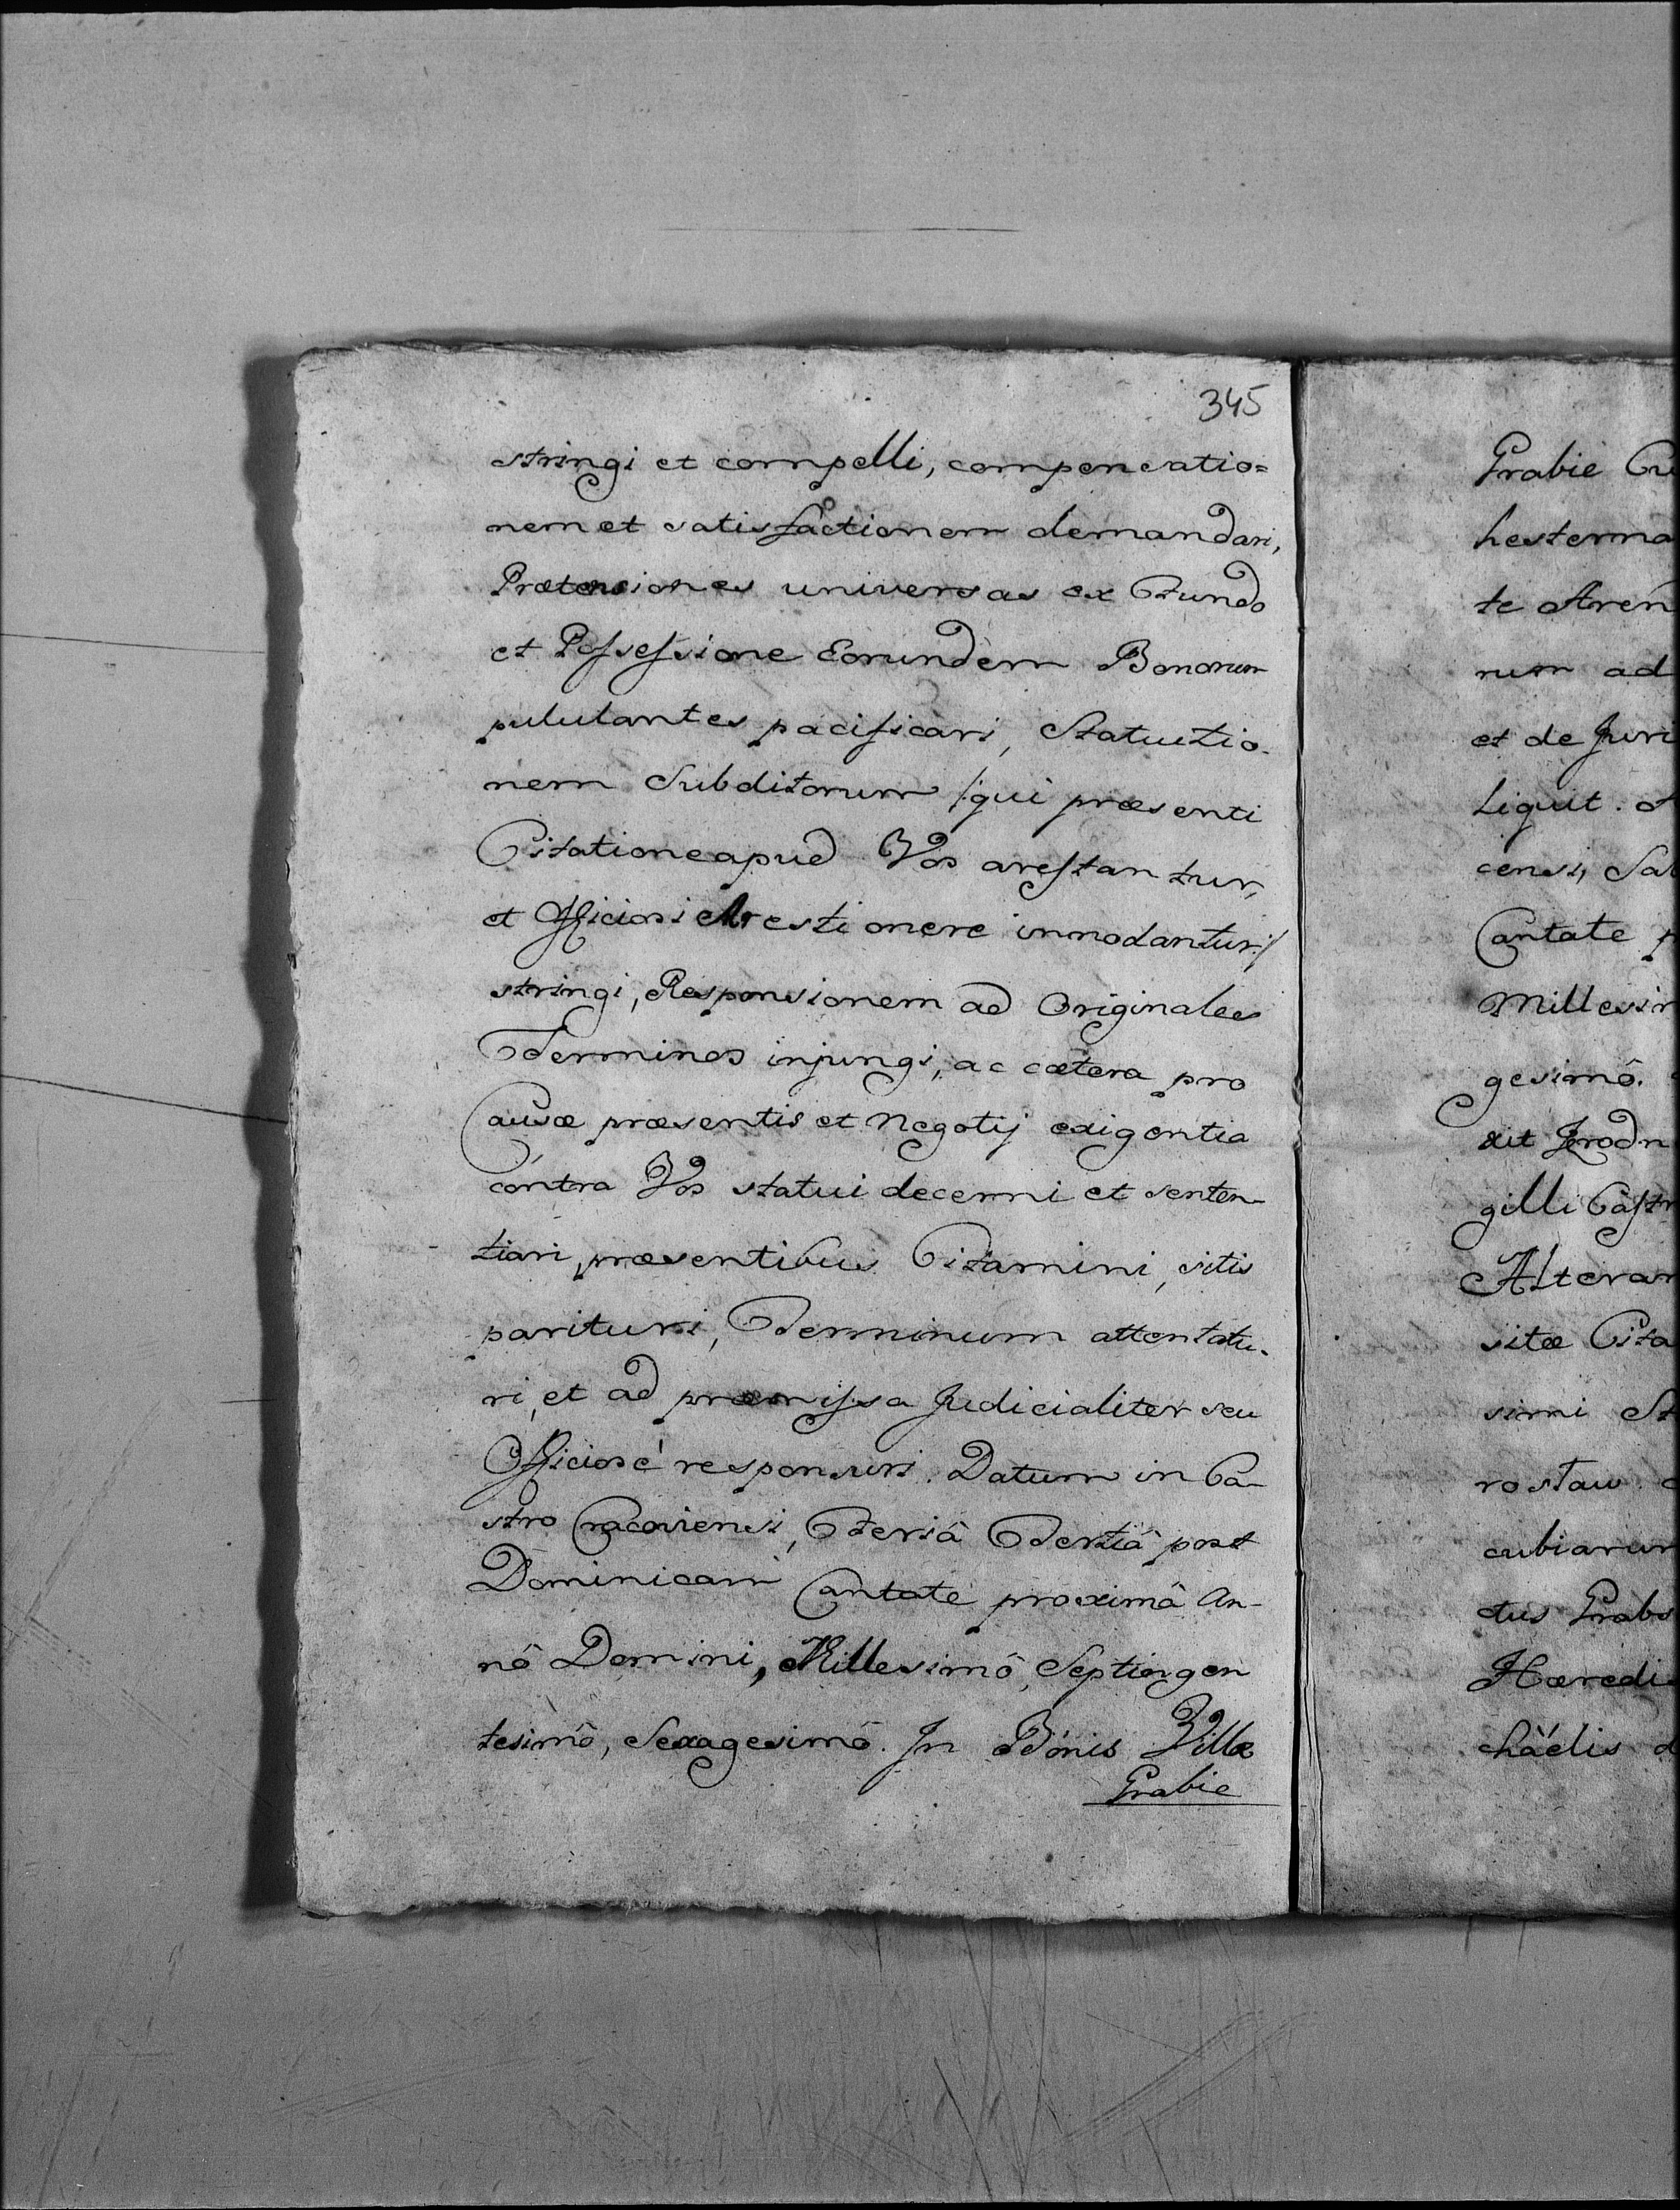 345
stringi et compelli, compensatio=
nem et satisfactionem demandari,
Prætensiones universas ex Fundo
et Possessione Eorundem Bonorum
pululantes pacificari, Statuitio-
nem Subditorum /:qui præsenti
Citatione apud Vos arestantur,
et Officiosi Aresti onere innodantur:/
stringi, Responsionem ad Originales
Terminos injungi, ac cætera pro
Causæ præsentis et Negotij exigentia
contra Vos statui decerni et senten-
tiari, præsentibus Citamini, sitis
parituri, Terminum attentatu-
ri, et ad præmissa Judicialiter seu
Officiosè responsuri. Datum in Ca-
stro Cracoviensi, Feriâ Tertiâ post
Dominicam Cantate proximâ An-
nô Domini, Millesimô, Septingen
tesimô, Sexagesimô. In Bonis Villæ
Grabie
Grabie
hesterna
te
rum ad
et de Juri
liquit.
censi,
Cantate
Millesim
gesimô.
xit
gilli Castr
Alteram
sitæ Cita
simi St
rostaw
cubiarum
ctus Grabs
Hæredi
chaëlis